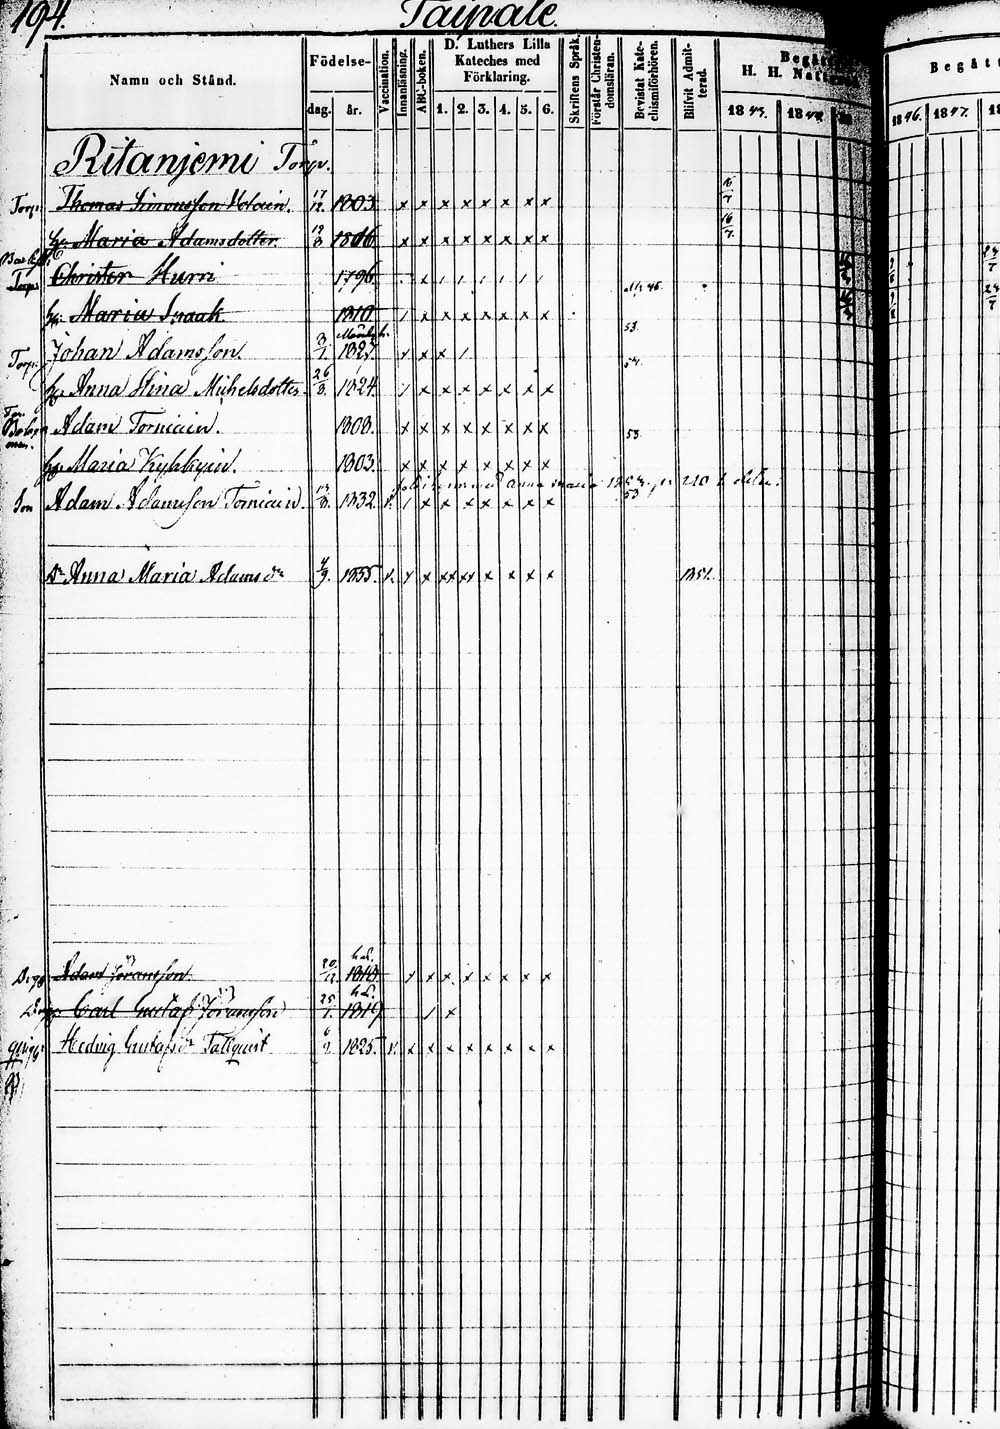 194.
Taipale.
Namn och Stånd.
Födelse-
dag. år.
Vaccination.
Innanläsning.
ABC-boken.
D. Luthers Lilla
Kateches med
Förklaring.
1. 2. 3. 4. 5. 6.
Skriftens Språk.
Förstår Christen-
domsläran.
Bevistat Kate-
chismiförhören.
Blifvit Admit-
terad.
H. H. Natt
1843. 1844.
Begått
1846. 1847. 18
Ritanjemi Torp.
Torp. Thomas Simonsson 17/12 1803 x x x x x x x x 16/7
hu Maria Adamsdotter 19/3 1806 x x x x x x x x 16/7
Torp. Christer Hurri 1796
hu Maria Isaak 1810 / x x x x x x x
Torp. Johan Adamsson. 3/1 1827 x x x / 53.
hu Anna Stina Michelsdotter 26/3. 1824 / x x x x x x x 54.
Adam Torniain. 1808. x x x x x x x x 53
hu Maria Kykkyin. 1803. x x x x x x x x
Son Adam Adamsson Torniain. 13/3. 1832. v. / x x x x x x x 53
Dr Anna Maria Adamsdr 4/9. 1835. v. x x xx xx x x x x 1851.
Adam Göransson 20/12 1818 x x x x x x x x
Carl Gustaf Göransson 25/1. 1819 / x
Hedvig Gustafsdr Tallquist 6/2 1825. v. x x x x x x x x